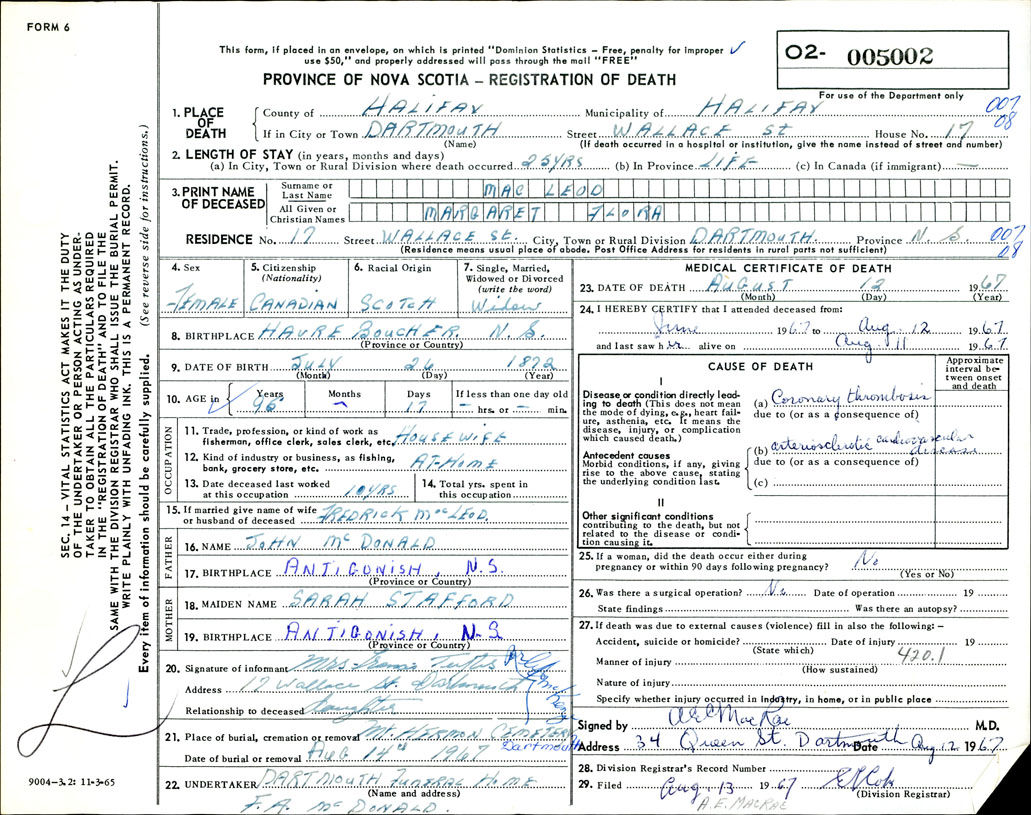 FORM 6
This form, if placed in an envelope, on which is printed "Dominion Statistics – Free, penalty for improper
use $50," and properly addressed will pass through the mail "FREE"
PROVINCE OF NOVA SCOTIA – REGISTRATION OF DEATH
02- 005002
For use of the Department only
007
08
1. PLACE OF DEATH { County of HALIFAX Municipality of HALIFAX
If in City or Town DARTMOUTH Street WALLACE St House No. 17
(Name) (If death occurred in a hospital or institution, give the name instead of street and number)
2. LENGTH OF STAY (in years, months and days)
(a) In City, Town or Rural Division where death occurred 25 YRS (b) In Province LIFE (c) In Canada (if immigrant) —
3. PRINT NAME OF DECEASED
Surname or Last Name MAC LEOD
All Given or Christian Names MARGARET FLORA
RESIDENCE No. 17 Street WALLACE St. City, Town or Rural Division DARTMOUTH. Province N.S.
007
08
(Residence means usual place of abode. Post Office Address for residents in rural parts not sufficient)
4. Sex
FEMALE
5. Citizenship
(Nationality)
CANADIAN
6. Racial Origin
SCOTCH
7. Single, Married,
Widowed or Divorced
(write the word)
Widow
8. BIRTHPLACE HAVRE BOUCHER. N.S.
(Province or Country)
9. DATE OF BIRTH JULY 26 1872
(Month) (Day) (Year)
10. AGE in Years Months Days If less than one day old
95 – 17 – hrs. or – min.
OCCUPATION
11. Trade, profession, or kind of work as
fisherman, office clerk, sales clerk, etc. HOUSEWIFE
12. Kind of industry or business, as fishing,
bank, grocery store, etc. AT-HOME
13. Date deceased last worked
at this occupation 10 YRS
14. Total yrs. spent in
this occupation
15. If married give name of wife
or husband of deceased FREDRICK MacLEOD.
FATHER
16. NAME JOHN McDONALD
17. BIRTHPLACE ANTIGONISH, N.S.
(Province or Country)
MOTHER
18. MAIDEN NAME SARAH STAFFORD
19. BIRTHPLACE ANTIGONISH, N-S
(Province or Country)
20. Signature of informant Mrs
Address 17 Wallace St. Dartmouth
Relationship to deceased daughter
21. Place of burial, cremation or removal Mt. HERMAN CEMETERY
Dartmouth
Date of burial or removal AUG 14th 1967
22. UNDERTAKER DARTMOUTH FUNERAL HOME
(Name and address)
F.A. McDONALD.
MEDICAL CERTIFICATE OF DEATH
23. DATE OF DEATH AUGUST 12 1967
(Month) (Day) (Year)
24. I HEREBY CERTIFY that I attended deceased from:
June 1967 to Aug. 12 1967
and last saw her alive on Aug 11 1967.
CAUSE OF DEATH
Approximate
interval be-
tween onset
and death
I
Disease or condition directly lead-
ing to death (This does not mean
the mode of dying, e.g., heart fail-
ure, asthenia, etc. It means the
disease, injury, or complication
which caused death.)
(a) Coronary thrombosis
due to (or as a consequence of)
Antecedent causes
Morbid conditions, if any, giving
rise to the above cause, stating
the underlying condition last.
(b) arteriosclerotic cardiovascular
disease
due to (or as a consequence of)
(c)
II
Other significant conditions
contributing to the death, but not
related to the disease or condi-
tion causing it.
25. If a woman, did the death occur either during
pregnancy or within 90 days following pregnancy? No
(Yes or No)
26. Was there a surgical operation? No Date of operation 19
State findings Was there an autopsy?
27. If death was due to external causes (violence) fill in also the following: –
Accident, suicide or homicide? Date of injury 19
(State which)
420.1
Manner of injury
(How sustained)
Nature of injury
Specify whether injury occurred in industry, in home, or in public place
Signed by A E MacRae M.D.
Address 34 Queen St. Dartmouth Date Aug. 12 1967.
28. Division Registrar's Record Number
29. Filed Aug. 13 1967
(Division Registrar)
A.E. MACRAE
SEC. 14 – VITAL STATISTICS ACT MAKES IT THE DUTY
OF THE UNDERTAKER OR PERSON ACTING AS UNDER-
TAKER TO OBTAIN ALL THE PARTICULARS REQUIRED
IN THE "REGISTRATION OF DEATH" AND TO FILE THE
SAME WITH THE DIVISION REGISTRAR WHO SHALL ISSUE THE BURIAL PERMIT.
WRITE PLAINLY WITH UNFADING INK. THIS IS A PERMANENT RECORD.
Every item of information should be carefully supplied. (See reverse side for instructions.)
9004-3.2: 11-3-65